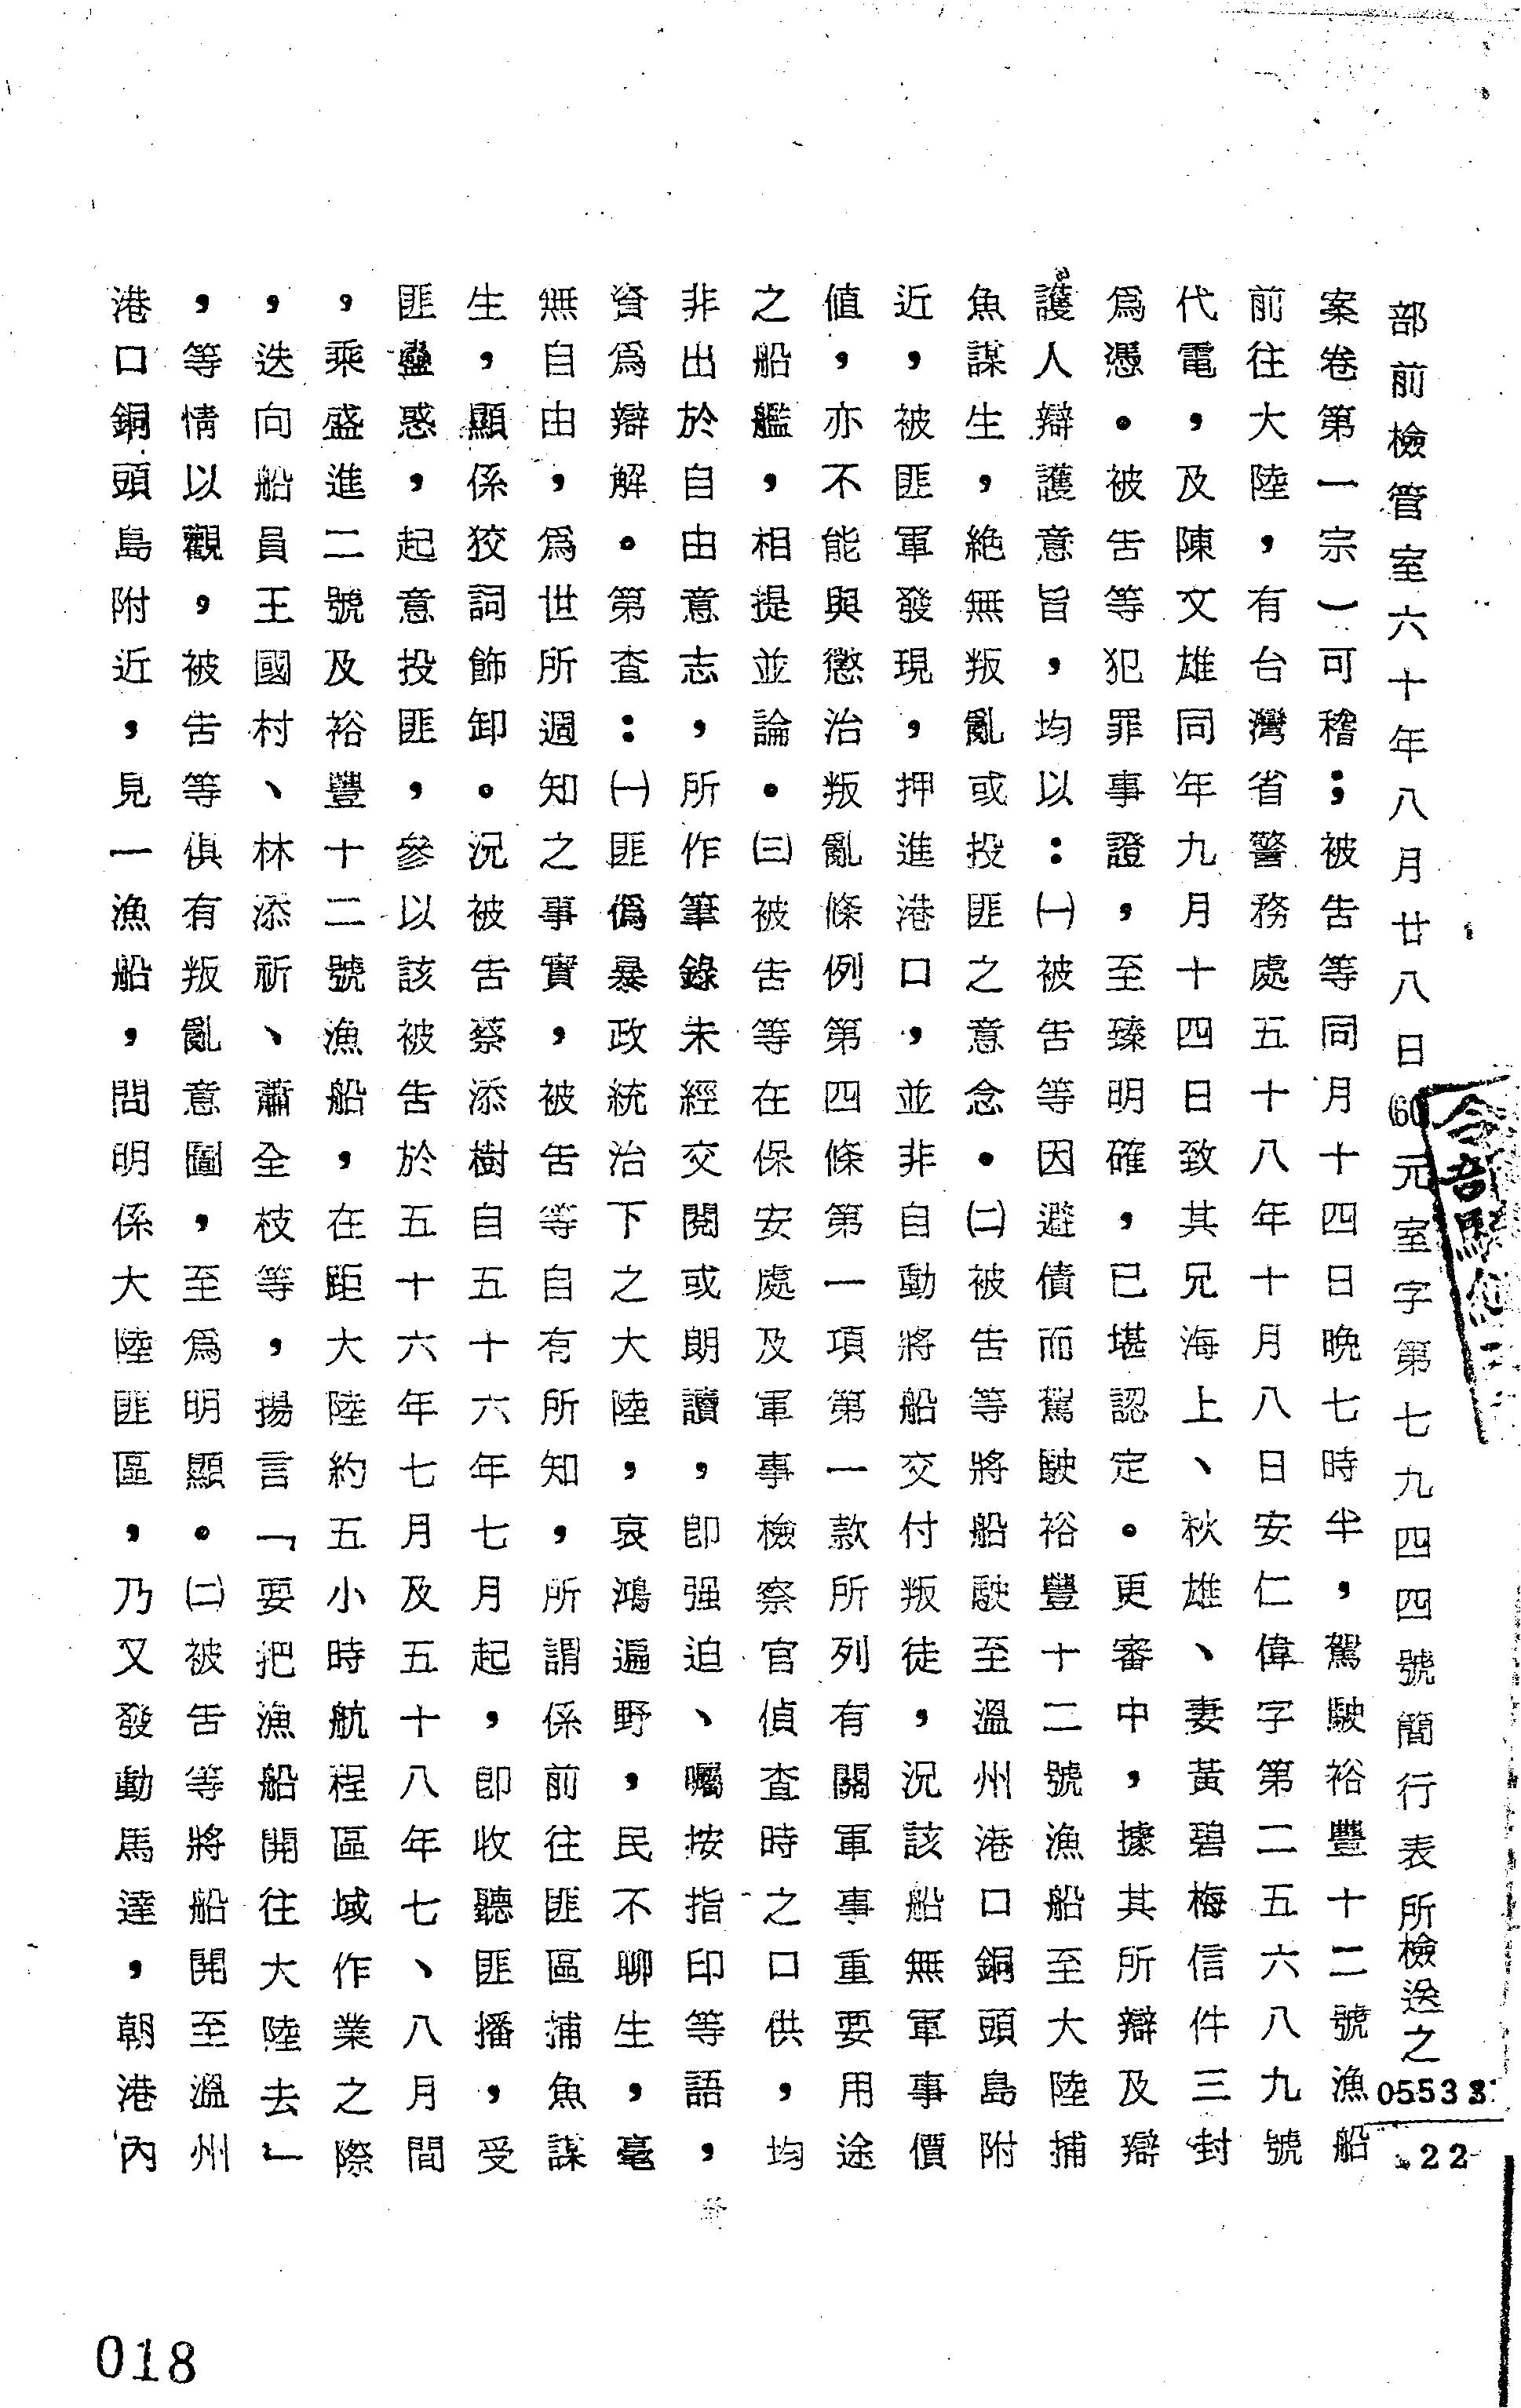 部前檢管室六十年八月廿八日(60)元室字第七九四四號簡行表所檢送之
案卷第一宗）可稽；被告等同月十四日晚七時半，駕駛裕豐十二號漁船
前往大陸，有台灣省警務處五十八年十月八日安仁偉字第二五六八九號
代電，及陳文雄同年九月十四日致其兄海上、秋雄、妻黃碧梅信件三封
爲憑。被告等犯罪事證，至臻明確，已堪認定。更審中，據其所辯及辯
護人辯護意旨，均以：㈠被告等因避債而駕駛裕豐十二號漁船至大陸捕
魚謀生，絶無叛亂或投匪之意念。㈡被告等將船駛至溫州港口銅頭島附
近，被匪軍發現，押進港口，並非自動將船交付叛徒，況該船無軍事價
值，亦不能與懲治叛亂條例第四條第一項第一款所列有關軍事重要用途
之船艦，相提並論。㈢被告等在保安處及軍事檢察官偵查時之口供，均
非出於自由意志，所作筆錄未經交閱或朗讀，即强迫、囑按指印等語，
資爲辯解。第查：㈠匪僞暴政統治下之大陸，哀鴻遍野，民不聊生，毫
無自由，爲世所週知之事實，被告等自有所知，所謂係前往匪區捕魚謀
生，顯係狡詞飾卸。況被告蔡添樹自五十六年七月起，即收聽匪播，受
匪蠱惑，起意投匪，參以該被告於五十六年七月及五十八年七、八月間
，乘盛進二號及裕豐十二號漁船，在距大陸約五小時航程區域作業之際
，迭向船員王國村、林添祈、蕭全枝等，揚言「要把漁船開往大陸去」
，等情以觀，被告等俱有叛亂意圖，至爲明顯。㈡被告等將船開至溫州
港口銅頭島附近，見一漁船，問明係大陸匪區，乃又發動馬達，朝港內
05533
22
018